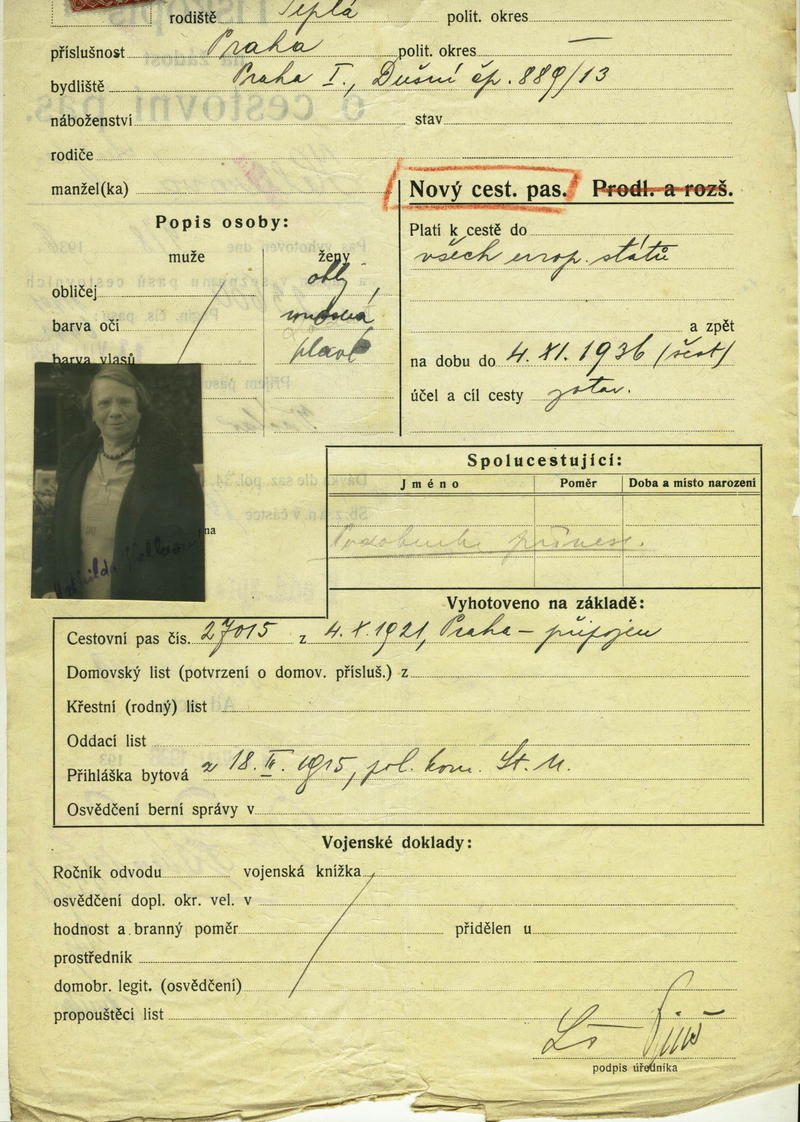 rodiště Teplá polit. okres
příslušnost Praha polit. okres —
bydliště Praha I., Dušní čp. 889/13
náboženství stav
rodiče
manžel(ka)
Nový cest. pas. Prodl. a rozš.
Popis osoby:
muže ženy
obličej obl.
barva očí
barva vlasů plavé
Platí k cestě do
všech evrop. států
a zpět
na dobu do 4. XI. 1936 (šest)
účel a cíl cesty zotav.
Spolucestující:
Jméno Poměr Doba a místo narození
Podobenku přinese.
na
Mathilda
Vyhotoveno na základě:
Cestovní pas čís. 27015 z 4. X. 1921, Praha – připojen
Domovský list (potvrzení o domov. přísluš.) z
Křestní (rodný) list
Oddací list
Přihláška bytová z 18. II. 1915, pol. kom. St. M.
Osvědčení berní správy v
Vojenské doklady:
Ročník odvodu vojenská knížka
osvědčení dopl. okr. vel. v
hodnost a branný poměr přidělen u
prostředník
domobr. legit. (osvědčení)
propouštěcí list
podpis úředníka